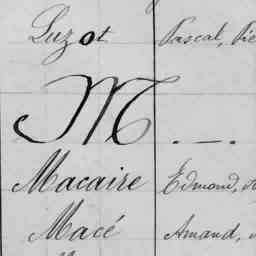 Luzot Pascal, Pie
M. —.
Macaire Edmond,
Macé Amand,